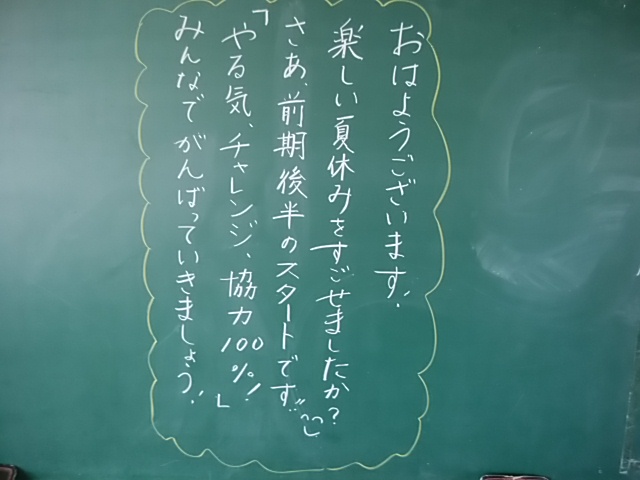 おはようございます!
楽しい夏休みをすごせましたか?
さあ、前期後半のスタートです!!
「やる気、チャレンジ、協力100%!」
みんなでがんばっていきましょう!